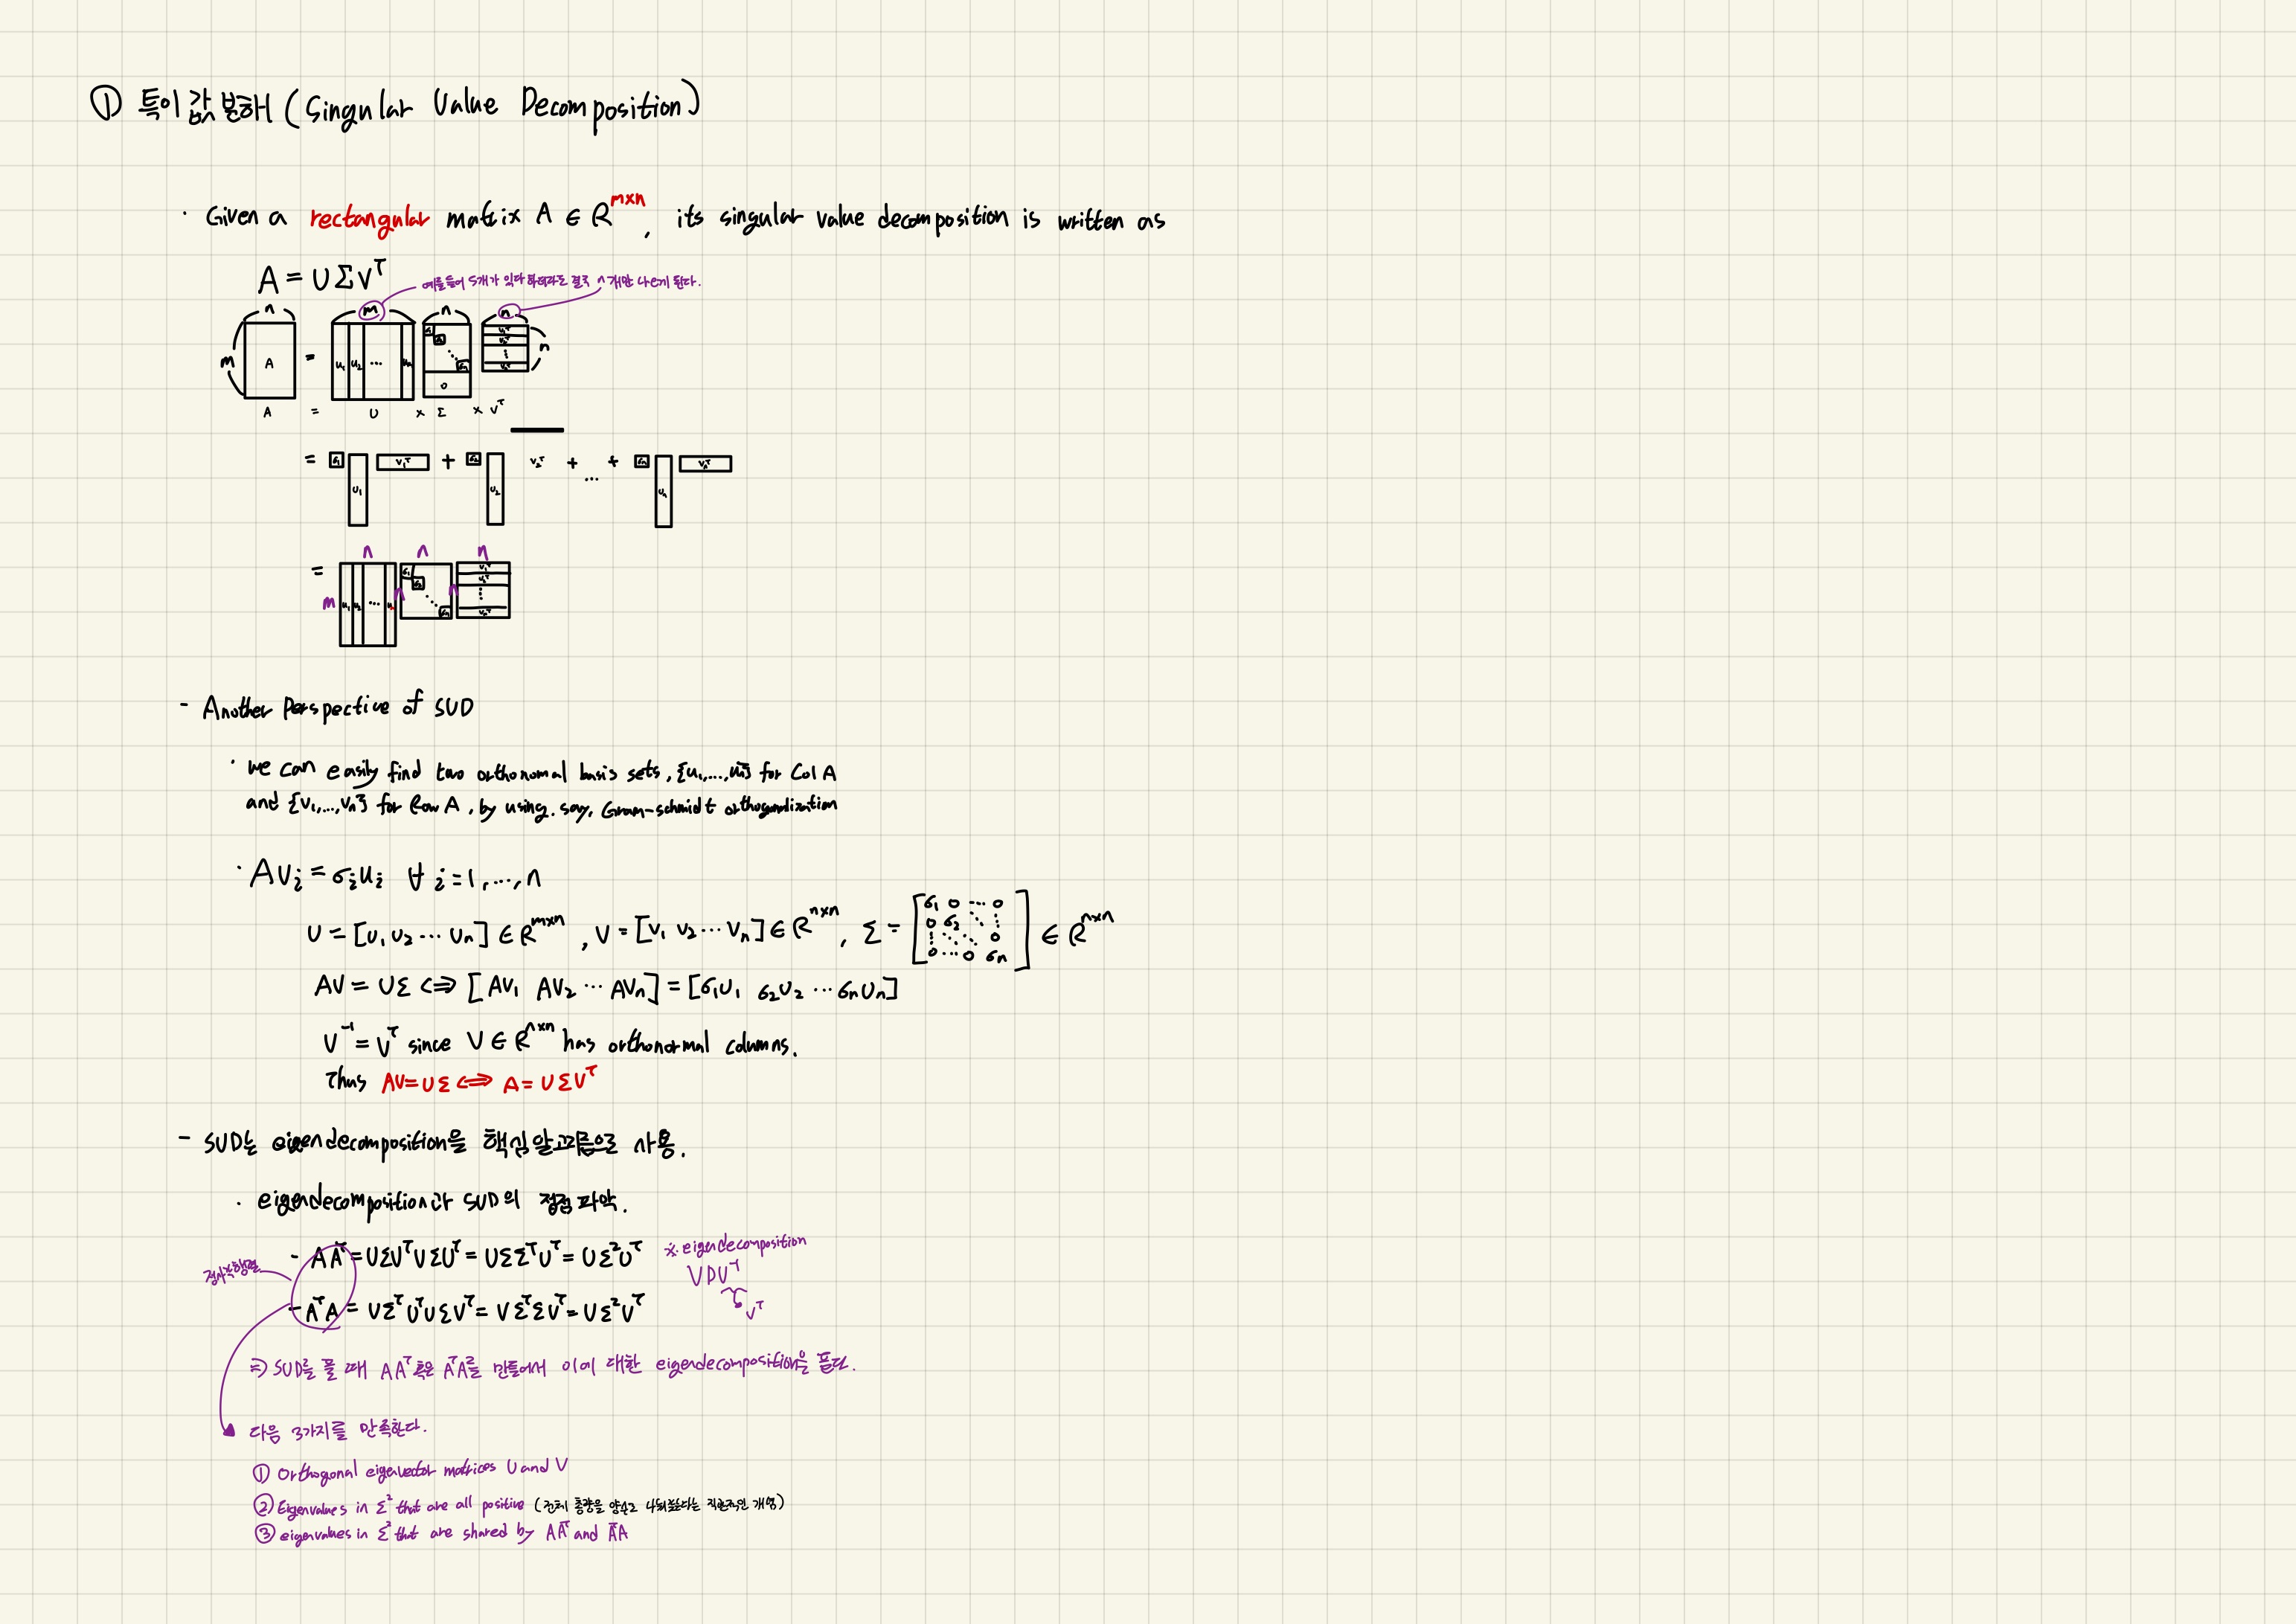 ① 특이값 분해 (Singular Value Decomposition)
· Given a rectangular matrix A ∈ R^{m×n}, its singular value decomposition is written as
A = UΣV^T
예를들어 5개가 있다 하더라도 결국 n개만 나오게 된다.
n m n n
m A = u₁ u₂ ⋯ σ₁ σ₂ ⋱ σₙ 0 v₁^T v₂^T ⋮ vₙ^T n
A = U × Σ × V^T
= σ₁ u₁ v₁^T + σ₂ u₂ v₂^T + ⋯ + σₙ uₙ vₙ^T
n n n
= m u₁ u₂ ⋯ uₙ n σ₁ σ₂ ⋱ σₙ n v₁^T v₂^T ⋮ vₙ^T
- Another Perspective of SVD
· we can easily find two orthonomal basis sets, {u₁,...,uₙ} for Col A
and {v₁,...,vₙ} for Row A, by using. say, Gram-schmidt orthogonalization
· Avᵢ = σᵢuᵢ ∀ i=1,...,n
U = [u₁ u₂ ⋯ uₙ] ∈ R^{m×n}, V = [v₁ v₂ ⋯ vₙ] ∈ R^{n×n}, Σ = [σ₁ 0 ⋯ 0
0 σ₂ ⋱ ⋮
⋮ ⋱ ⋱ 0
0 ⋯ 0 σₙ] ∈ R^{n×n}
AV = UΣ ⟺ [AV₁ AV₂ ⋯ AVₙ] = [σ₁U₁ σ₂U₂ ⋯ σₙUₙ]
V^{-1} = V^T since V ∈ R^{n×n} has orthonormal columns.
Thus AV=UΣ ⟺ A = UΣV^T
- SVD는 eigendecomposition을 핵심 알고리즘으로 사용.
· eigendecomposition과 SVD의 접점 파악.
- AA^T = UΣV^TVΣU^T = UΣΣ^TU^T = UΣ²U^T
※ eigendecomposition
정사각행렬
VDV^{-1}
V^T
- A^TA = UΣ^TU^TUΣV^T = VΣ^TΣV^T = UΣ²V^T
⇒ SVD를 풀 때 AA^T 혹은 A^TA를 만들어서 이에 대한 eigendecomposition을 푼다.
다음 3가지를 만족한다.
① Orthogonal eigenvector matrices U and V
② Eigenvalues in Σ² that are all positive (전체 총량을 양수로 나눠놓는다는 직관적인 개념)
③ eigenvalues in Σ² that are shared by AA^T and A^TA